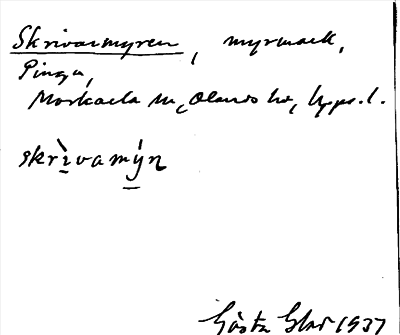 Skrivarmyren, myrmark,
Pinga,
Morkarla sn, Olands hd, Upps. l.
skrìvamýn
Gösta Blad 1937